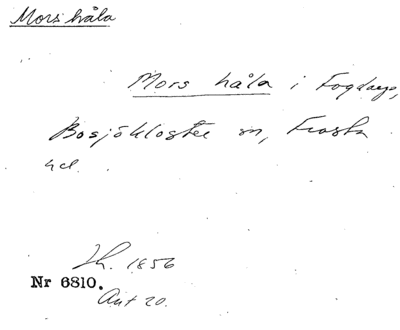 Mors håla
Mors håla i Fogdarp,
Bosjökloster sn, Frosta
hd.
Jh. 1856
Nr 6810.
Ant 20.